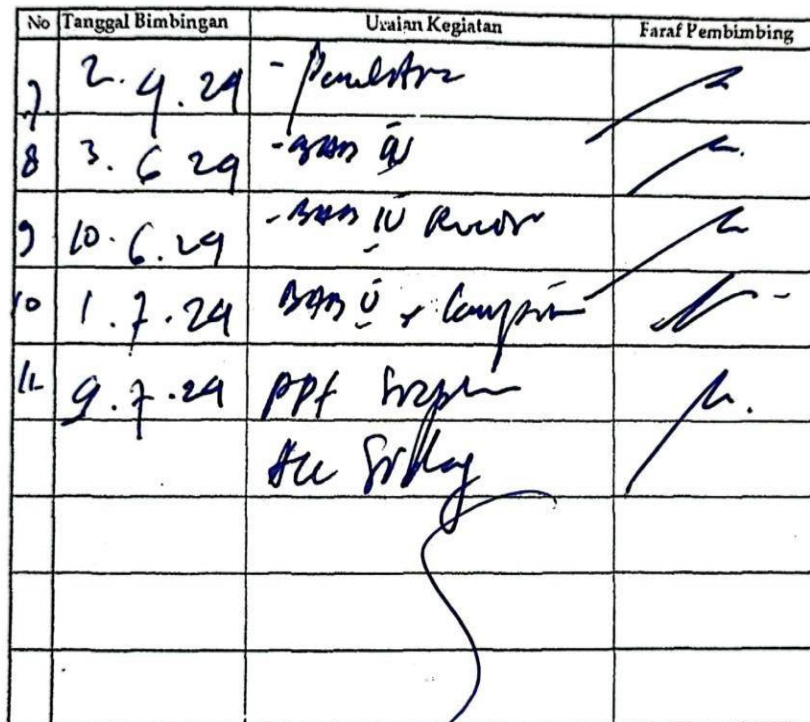 No Tanggal Bimbingan Uraian Kegiatan Faraf Pembimbing
7 2.4.24 -
8 3.6 24 - BAB IV
9 10.6.24 - BAB IV Revisi
10 1.7.24 BAB V + Lampiran
11 9.7.24 PPT Siapkan
Acc Sidang